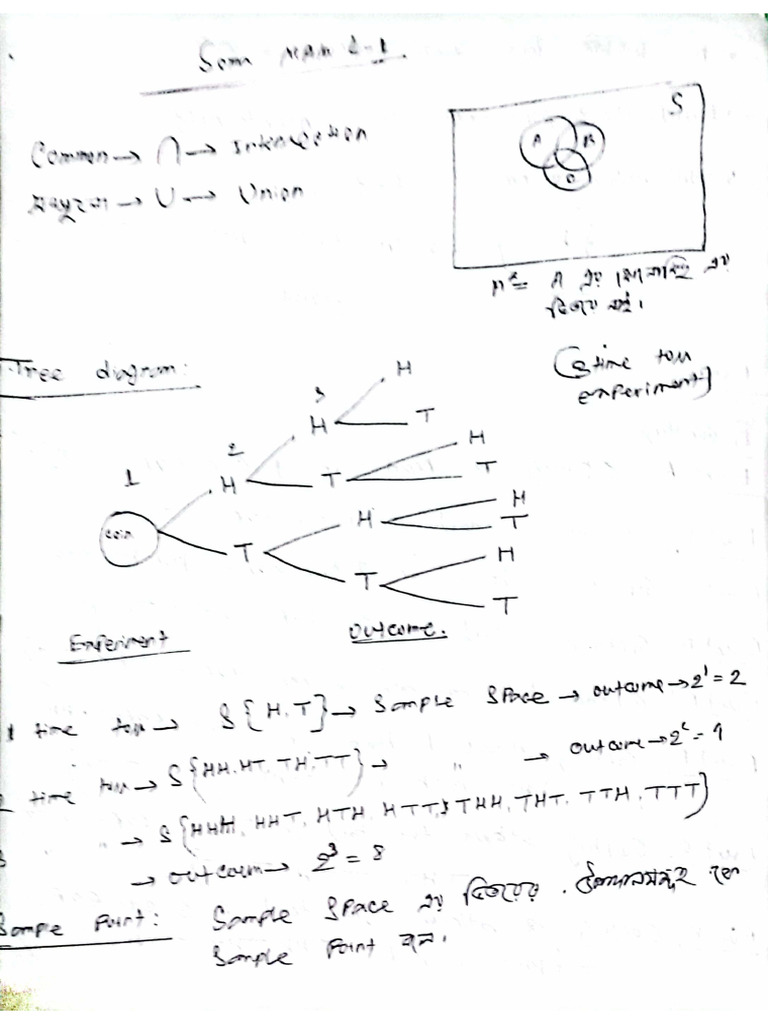 Common → ∩ → Intersection
→ U → Union
S
A B
C
A এর
নাই।
Tree diagram:
(3 time toss
experiment)
1 2 3
coin
H H H
T
T H
T
T H H
T
T H
T
Experiment Outcome.
1 time toss → S{H,T} → Sample Space → outcome → 2¹ = 2
2 time toss → S{HH, HT, TH, TT} → " → outcome → 2² = 4
3 " → S{HHH, HHT, HTH, HTT, THH, THT, TTH, TTT}
→ outcom → 2³ = 8
Sample Point: Sample Space এর ভিতরের উপাদানসমূহ কে
Sample Point বলে।